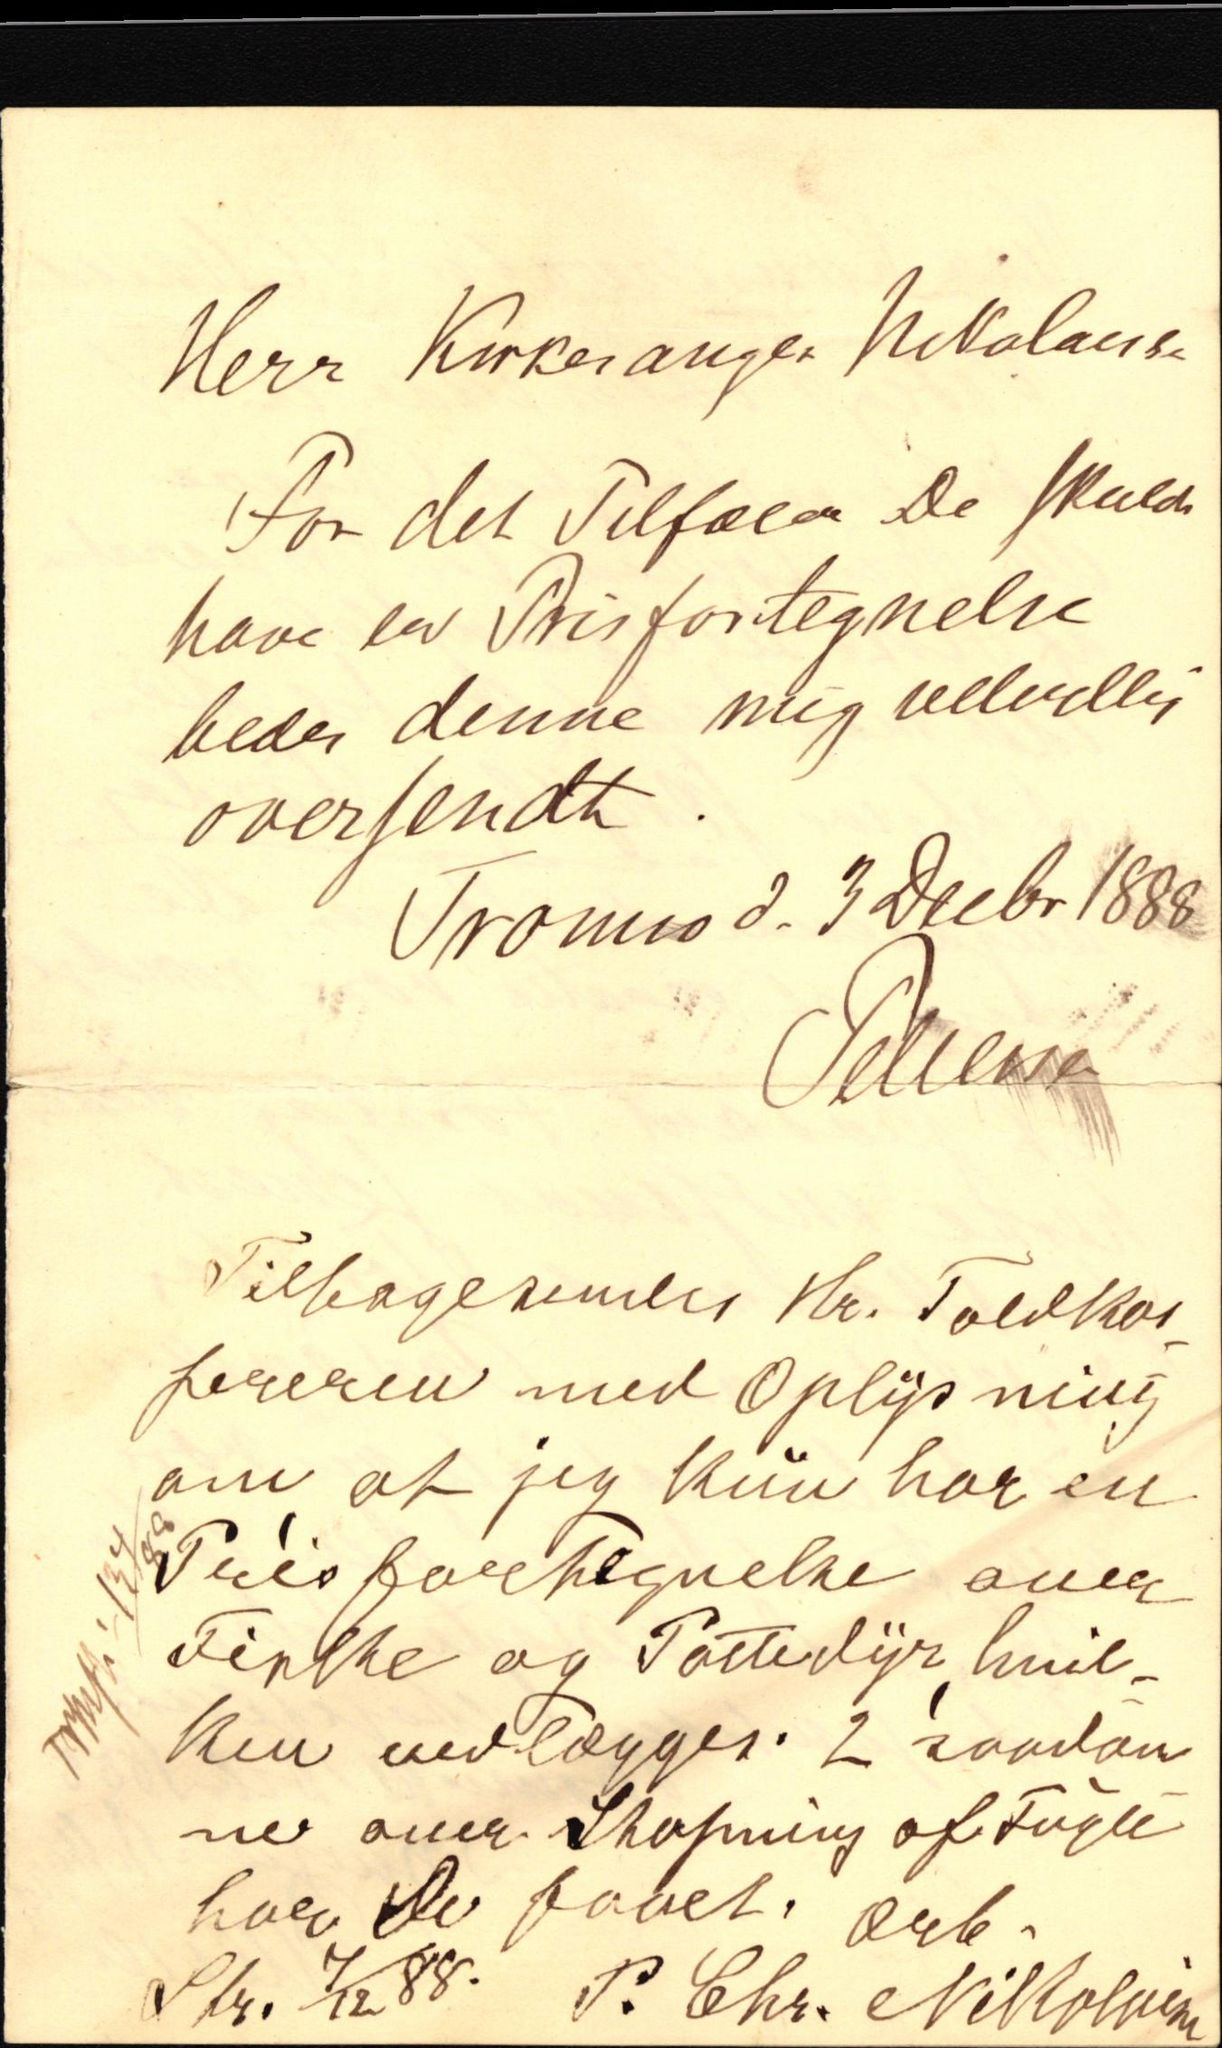 Herr Kirkesanger Nikolaisen
For det Tilfælde De skulde
have en Prisfortegnelse
bedes denne mig velvilligt
oversendt.
Tromsø d. 3 Decbr 1888
Tilbagesendes Hr. Toldkas-
fereren med Oplysning
om at jeg kun har en
Prisfortegnelse over
Fiske og Pattedyr, hvil-
ken vedlægges. 2 saadan
ne over Stopning af Fugle
har De faaet. Ærb.
Str. 7/12 88. P. Chr. Nikolaisen